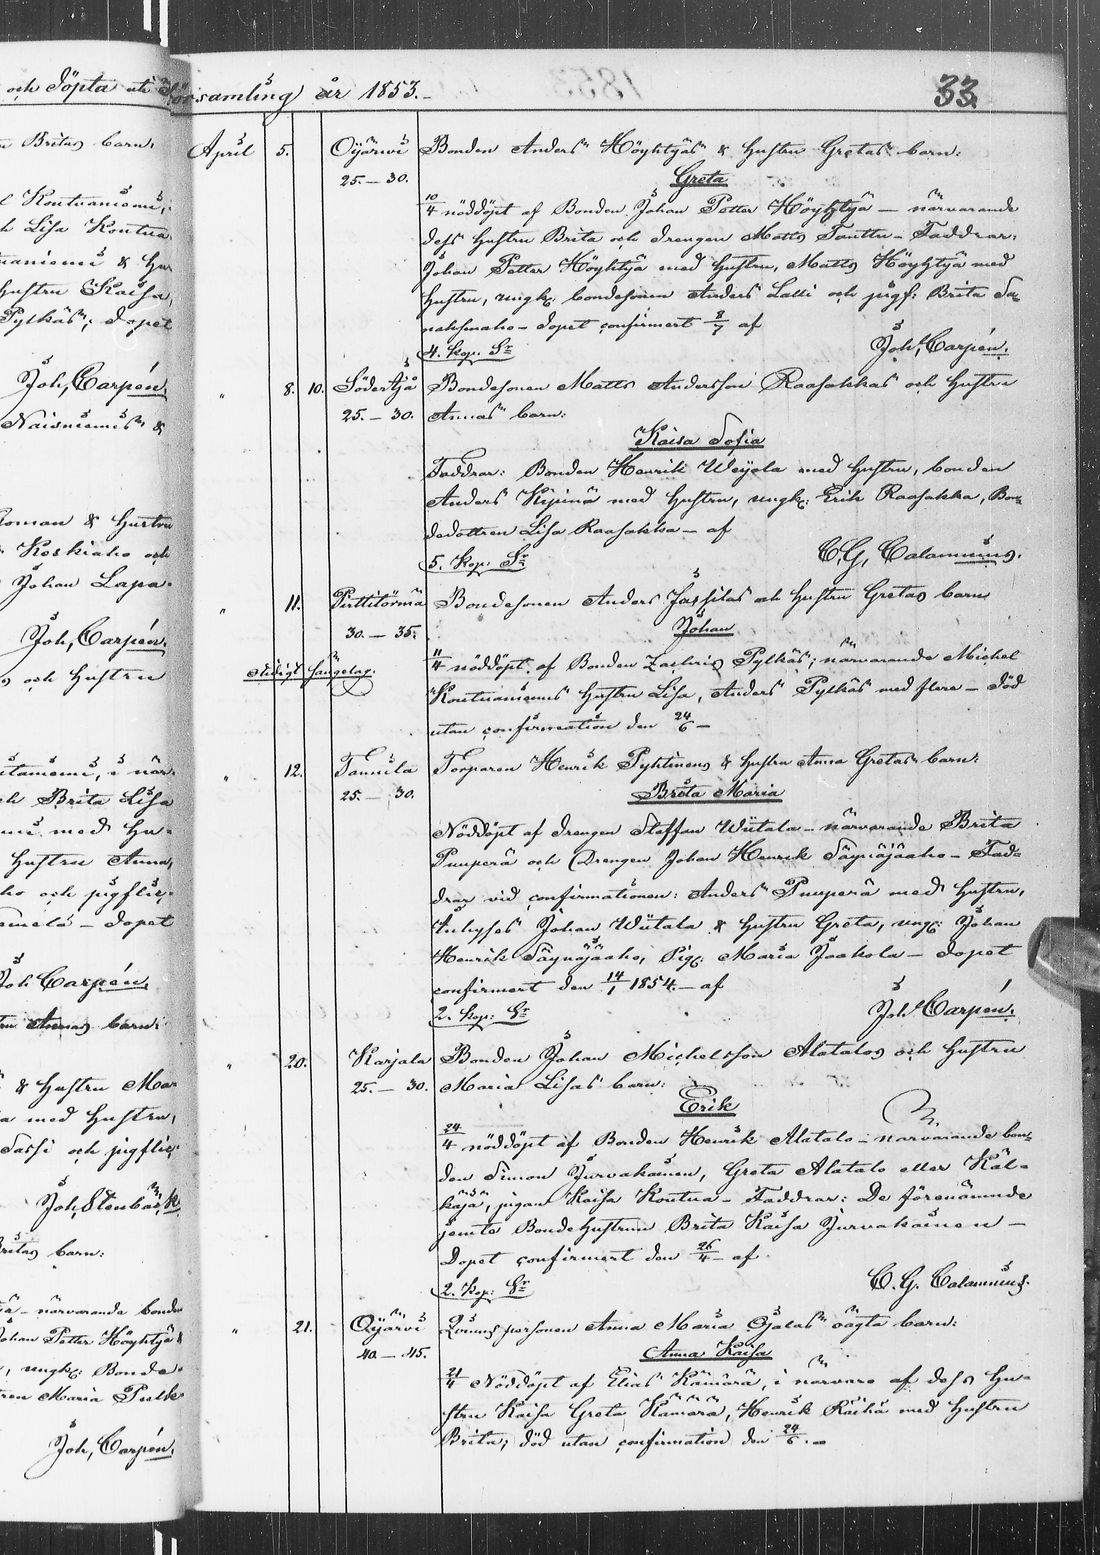 och döpta uti
n Britas barn:
l Kontuaniemi,
h Lisa Kontua
uaniemi & hu
hustru Kaisa,
Pylkäs; dopet
Joh, Carpén.
Naisniemis &
Roman & hustru
Koskiaho och
Johan Lapa-
Joh, Carpén.
s och hustru
itaniemi, i när-
ch Brita Lisa
mi med hu-
hustru Anna,
ho och pigflic-
melä – dopet
Joh, Carpén.
tru Annas barn:
& hustru Mar
a med hustru,
Sassi och pigflic
Joh, Stenbäck.
Britas barn:
ä – närvarande bonde
Johan Petter Höyhtyä &
, ungk: Bonde-
ren Maria Pulk
Joh, Carpén.
Församling år 1853.
33.
April 5. Oÿjärwi Bonden Anders Höyhtyäs & hustru Gretas barn:
25.–30. Greta
10/4 nöddöpt af Bonden Johan Petter Höyhtyä – närvarande
dess hustru Brita och drengen Matts Tanttu – Faddrar:
Johan Petter Höyhtyä med hustru, Matts Höyhtyä med
hustru, ungk: bondesonen Anders Latti och pigf: Brita Sa-
nahmaho – dopet confirmert 8/7 af
4. kop: Sr Joh, Carpén.
" 8. 10. Söderåjå Bondesonen Matts Andersson Raasakkas och hustru
25.–30. Annas barn:
Kaisa Sofia
Faddrar: Bonden Henrik Weijola med hustru, bonden
Anders Kipinä med hustru, ungk: Erik Raasakka, Bon-
dedottren Lisa Raasakka – af
5. kop: Sr C. G. Calamnius.
" 11. Pirttitörmä Bondesonen Anders Jassilas och hustru Gretas barn
30.–35. Johan
11/4 nöddöpt af Bonden Zachris Pylkäs; närvarande Michel
stidigt fångelag. Kontuaniemis hustru Lisa, Anders Pylkäs med flere – död
utan confirmation den 24/6 –
" 12. Tannila Torparen Henrik Pyhtinens & hustru Anna Gretas barn:
25.–30. Brita Maria
Nöddöpt af drengen Staffan Wiitala – närvarande Brita
Puuperä och Drengen Johan Henrik Säynäjäaho – Fad-
drar vid confirmationen: Anders Puuperä med hustru,
Inhyses Johan Wiitala & hustru Greta, ungk: Johan
Henrik Säynäjäaho, Pig: Maria Jaakola – dopet
confirmert den 14/1 1854. – af
2. kop: Gr Joh, Carpén.
" 20. Karjala Bonden Johan Michelsson Alatalos och hustru
25.–30. Maria Lisas barn:
Erik
24/4 nöddöpt af Bonden Henrik Alatalo – närvarande bon-
den Simon Jurvakainen, Greta Alatalo eller Käl-
käjä, pigan Kaisa Kontua – Faddrar: De förenämnde
jemte Bondehustrun Brita Kaisa Jurvakainen –
Dopet confirmert den 26/4 – af
2. kop: Gr C. G. Calamnius.
" 21. Oÿjärvi Qvinnspersonen Anna Maria Ojalas oägta barn:
40–45. Anna Kaisa
21/4 Nöddöpt af Elias Kämärä, i närvaro af dess hu-
stru Kaisa Greta Kämärä, Henrik Räihä med hustru
Brita; död utan confirmation den 24/6. –